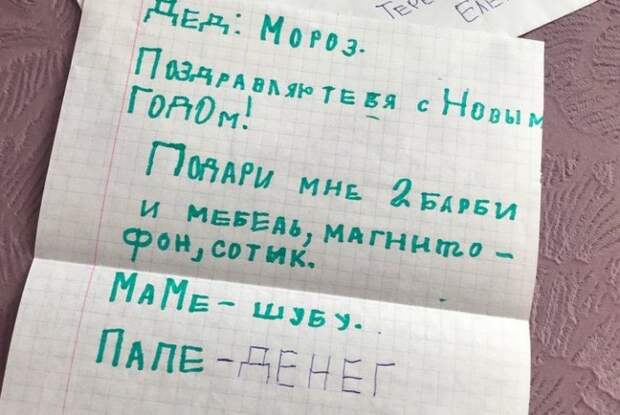 ДЕД: МОРОЗ.
ПОЗДРАВЛЯЮ ТЕБЯ С НОВЫМ
ГОДОМ!
ПОДАРИ МНЕ 2 БАРБИ
И МЕБЕЛЬ, МАГНИТО-
ФОН, СОТИК.
МАМЕ - ШУБУ.
ПАПЕ - ДЕНЕГ